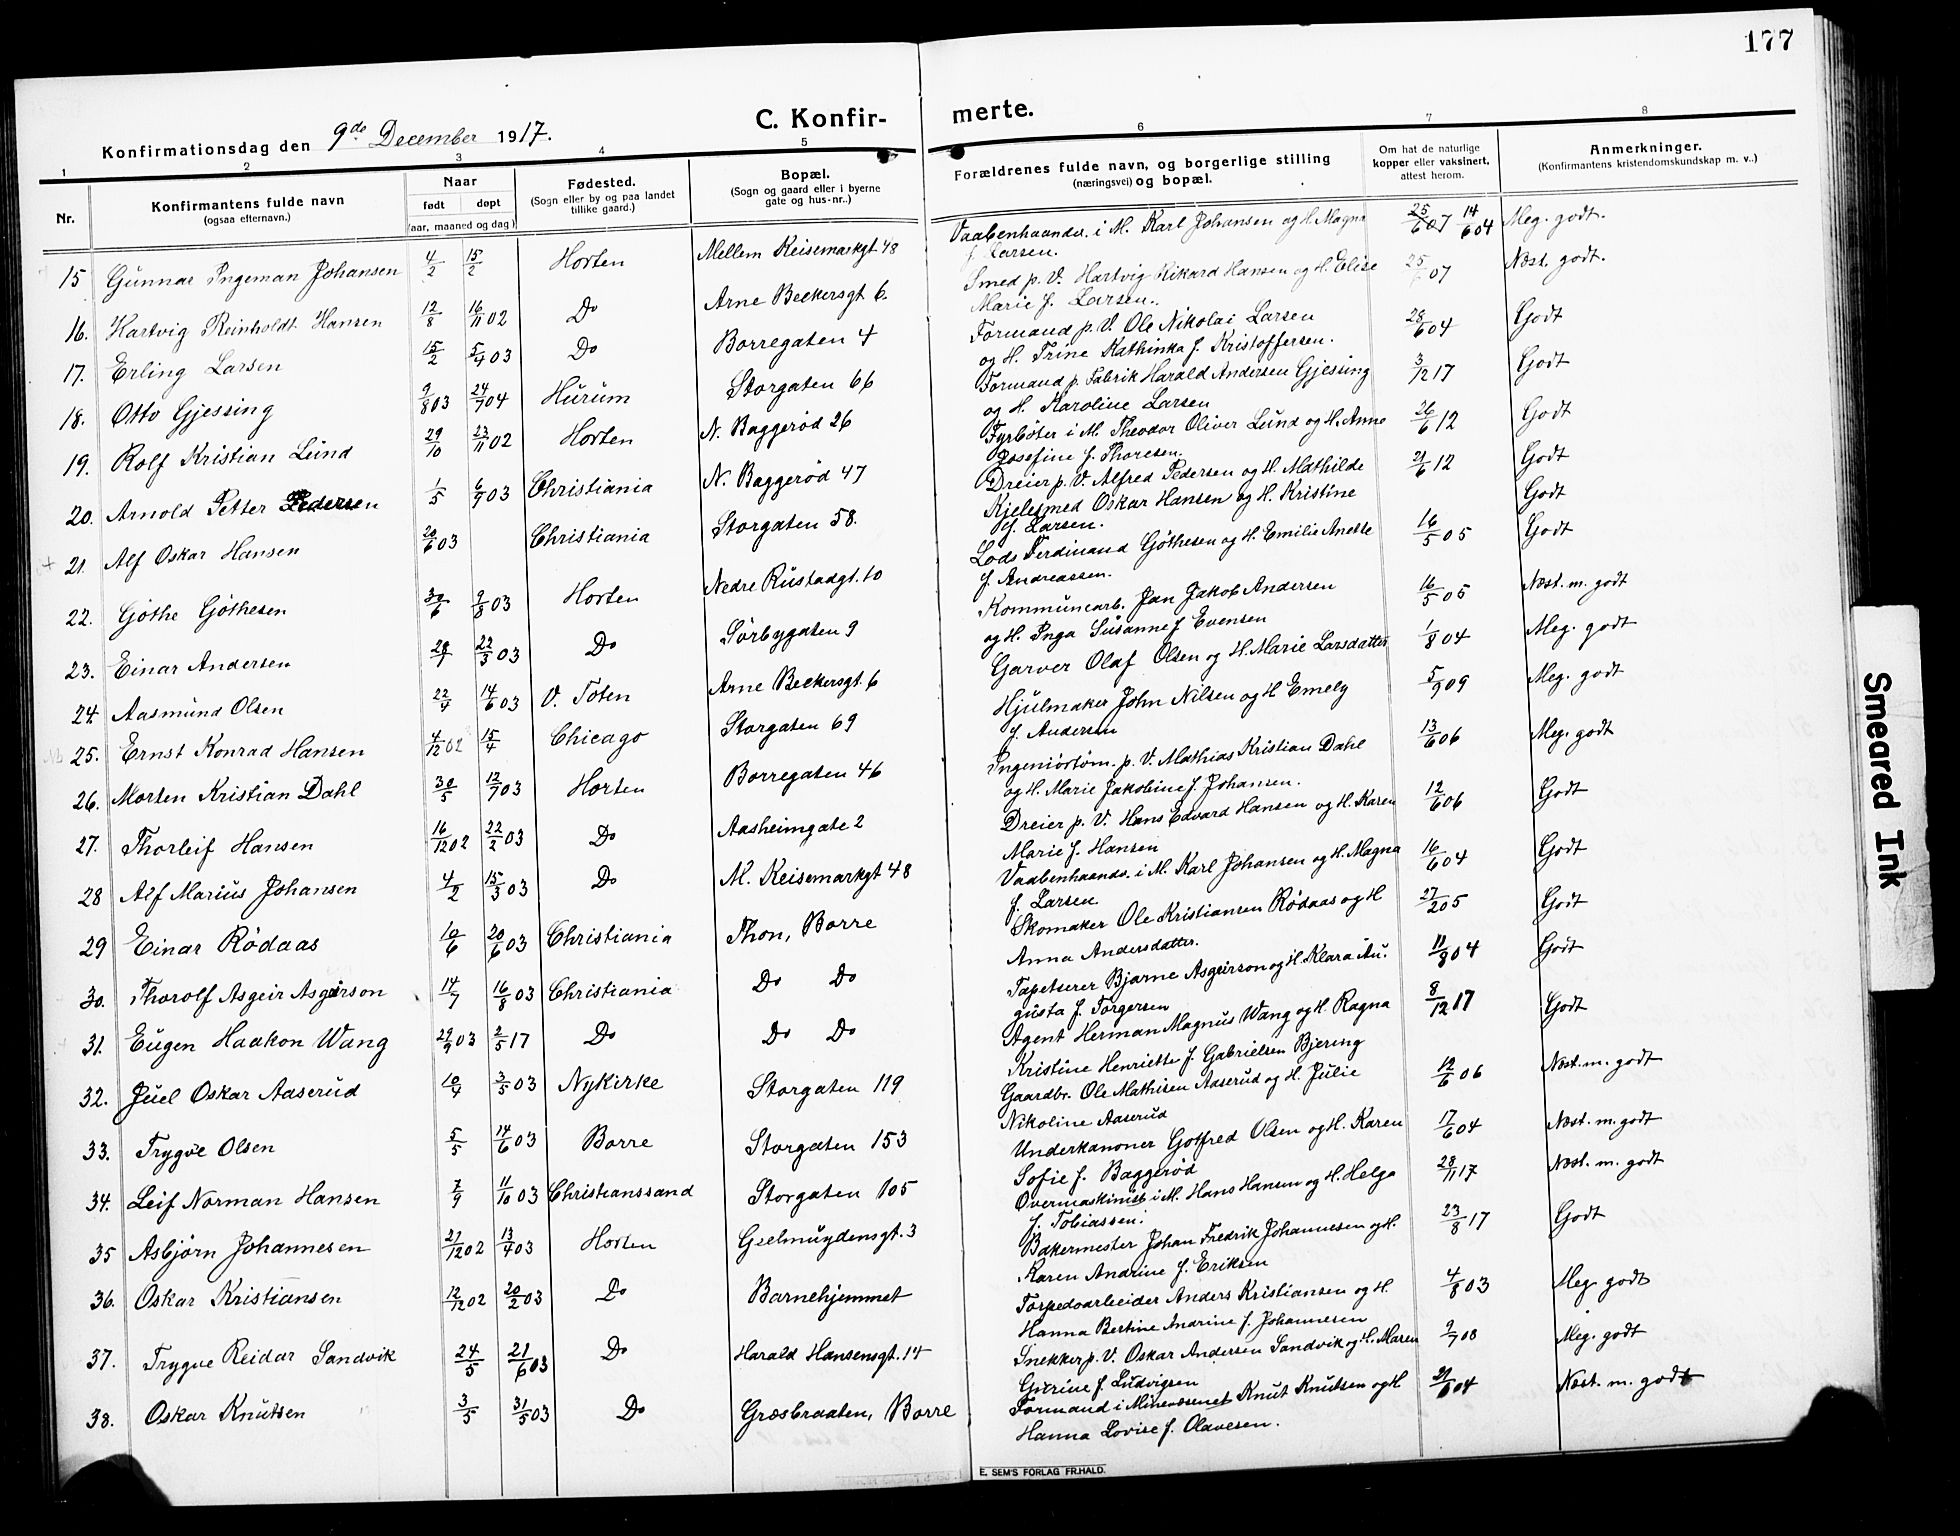 177
C. Konfir- merte.
Konfirmationsdag den 9de December 1917.
1 2 3 4 5 6 7 8
Nr.
Konfirmantens fulde navn
(ogsaa efternavn.)
Naar
født døpt
(aar, maaned og dag)
Fødested.
(Sogn eller by og paa landet
tillike gaard.)
Bopæl.
(Sogn og gaard eller i byerne
gate og hus-nr..)
Forældrenes fulde navn, og borgerlige stilling
(næringsvei) og bopæl.
Om hat de naturlige
kopper eller vaksinert,
attest herom.
Anmerkninger.
(Konfirmantens kristendomskundskap m. v..)
15 Gunnar Ingeman Johansen 4/2 15/2 Horten Mellem Keisemarkgt 48 Vaabenhaandv. i M. Karl Johansen og H. Magna 25/6 07 14/6 04 Meg. godt.
f. Larsen.
16. Hartvig Reinholdt Hansen 12/8 16/11 02 Do Arne Beckersgt 6. Smed p. V. Hartvig Rikard Hansen og H. Elise 25/6 07 Næst. godt.
Marie f. Larsen.
17. Erling Larsen 15/2 5/4 03 Do Borregaten 4 Formand p. V. Ole Nikolai Larsen 28/6 04 Godt
og H. Trine Kathinka f. Kristoffersen.
18. Otto Gjessing 9/8 03 24/7 04 Hurum Storgaten 66 Formand p. Fabrik Harald Andersen Gjessing 3/12 17 Godt
og H. Karoline Larsen
19. Rolf Kristian Lund 29/10 23/11 02 Horten N. Baggerød 26 Fyrbøter i M. Theodor Oliver Lund og H. Anne 26/6 12 Godt
Josefine f. Thoresen.
20. Arnold Petter Pedersen 1/5 6/9 03 Christiania N. Baggerød 47 Dreier p. V. Alfred Pedersen og H. Mathilde 21/6 12 Godt
+ 21. Alf Oskar Hansen 20/6 03 Christiania Storgaten 58. Kjelesmed Oskar Hansen og H. Kristine Godt
f. Larsen.
22. Gøthe Gøthesen 30/6 9/8 03 Horten Nedre Rustadgt. 10 Lods Ferdinand Gøthesen og H. Emilie Anette 16/5 05 Godt
f. Andreassen.
23. Einar Andersen 28/1 22/3 03 Do Sørbygaten 9 Kommunearb. Jan Jakob Andersen 16/5 05 Næst. m. godt
og H. Inga Susanne f. Evensen
24. Aasmund Olsen 22/4 14/6 03 V. Toten Arne Beckersgt. 6 Garver Olaf Olsen og H. Marie Larsdatter 1/8 04 Meg. godt
25. Ernst Konrad Hansen 4/12 02 15/4 Chicago Storgaten 69 Hjulmaker John Nilsen og H Emely 5/9 09 Meg. godt
f. Andersen
26. Morten Kristian Dahl 30/5 12/7 03 Horten Borregaten 46 Ingeniørtøm. p. V. Mathias Kristian Dahl 13/6 06 Meg. godt
og H. Marie Jakobine f. Johansen.
27. Thorleif Hansen 16/12 02 22/2 03 Do Aasheimgate 2 Dreier p. V. Hans Edvard Hansen og H. Karen 12/6 06 Godt
Marie f. Hansen
28 Alf Marius Johansen 4/2 15/3 03 Do M. Keisemarkgt 48 Vaabenhaandv. i M. Karl Johansen og H. Magna 16/6 04 Godt
f. Larsen
29 Einar Rødaas 10/6 20/6 03 Christiania Thon, Borre Skomaker Ole Kristiansen Rødaas og H 27/2 05 Godt
Anna Andersdatter.
30. Thorolf Asgeir Asgeirson 14/7 16/8 03 Christiania Do Do Tapetserer Bjarne Asgeirson og H. Klara Au- 11/8 04 Godt
gusta f. Torgersen
31. Eugen Haakon Wang 29/9 03 2/5 17 Do Do Do Agent Herman Magnus Wang og H. Ragna 8/12 17 Godt
Kristine Henriette f. Gabrielsen Bjering
32. Juel Oskar Aaserud 10/4 3/5 03 Nykirke Storgaten 119 Gaardbr. Ole Mathisen Aaserud og H. Julie 12/6 06 Næst. m. godt
Nikoline Aaserud
33. Trygve Olsen 5/5 14/6 03 Borre Storgaten 153 Underkanoner Gotfred Olsen og H. Karen 17/6 04 Næst. m. godt
Sofie f. Baggerød
34. Leif Norman Hansen 7/9 11/10 03 Christianssand Storgaten 105 Overmaskinist i M. Hans Hansen og H. Helga 28/11 17 Næst. m. godt
f. Tobiassen.
35 Asbjørn Johannesen 21/12 02 13/4 03 Horten Geelmuydensgt. 3 Bakermester Johan Fredrik Johannesen og H. 23/8 17 Godt
Karen Andrine f. Eriksen
36. Oskar Kristiansen 12/12 02 20/2 03 Do Barnehjemmet Torpedoarbeider Anders Kristiansen og H. 4/8 03 Meg. godt
Hanna Bertine Andrine f. Johannesen
37. Trygve Reidar Sandvik 24/5 21/6 03 Do Harald Hansensgt. 14 Snekker p. V. Oskar Andersen Sandvik og H. Maren 2/7 08 Meg. godt
Gurine f. Ludvigsen
38. Oskar Knutsen 3/5 31/5 03 Do Græsbraaten, Borre Formand i Minevæsenet Knut Knutsen og H 21/6 04 Næst. m. godt
Hanna Lovise f. Olavesen.
E. SEM'S FORLAG FR.HALD.
Smeared Ink